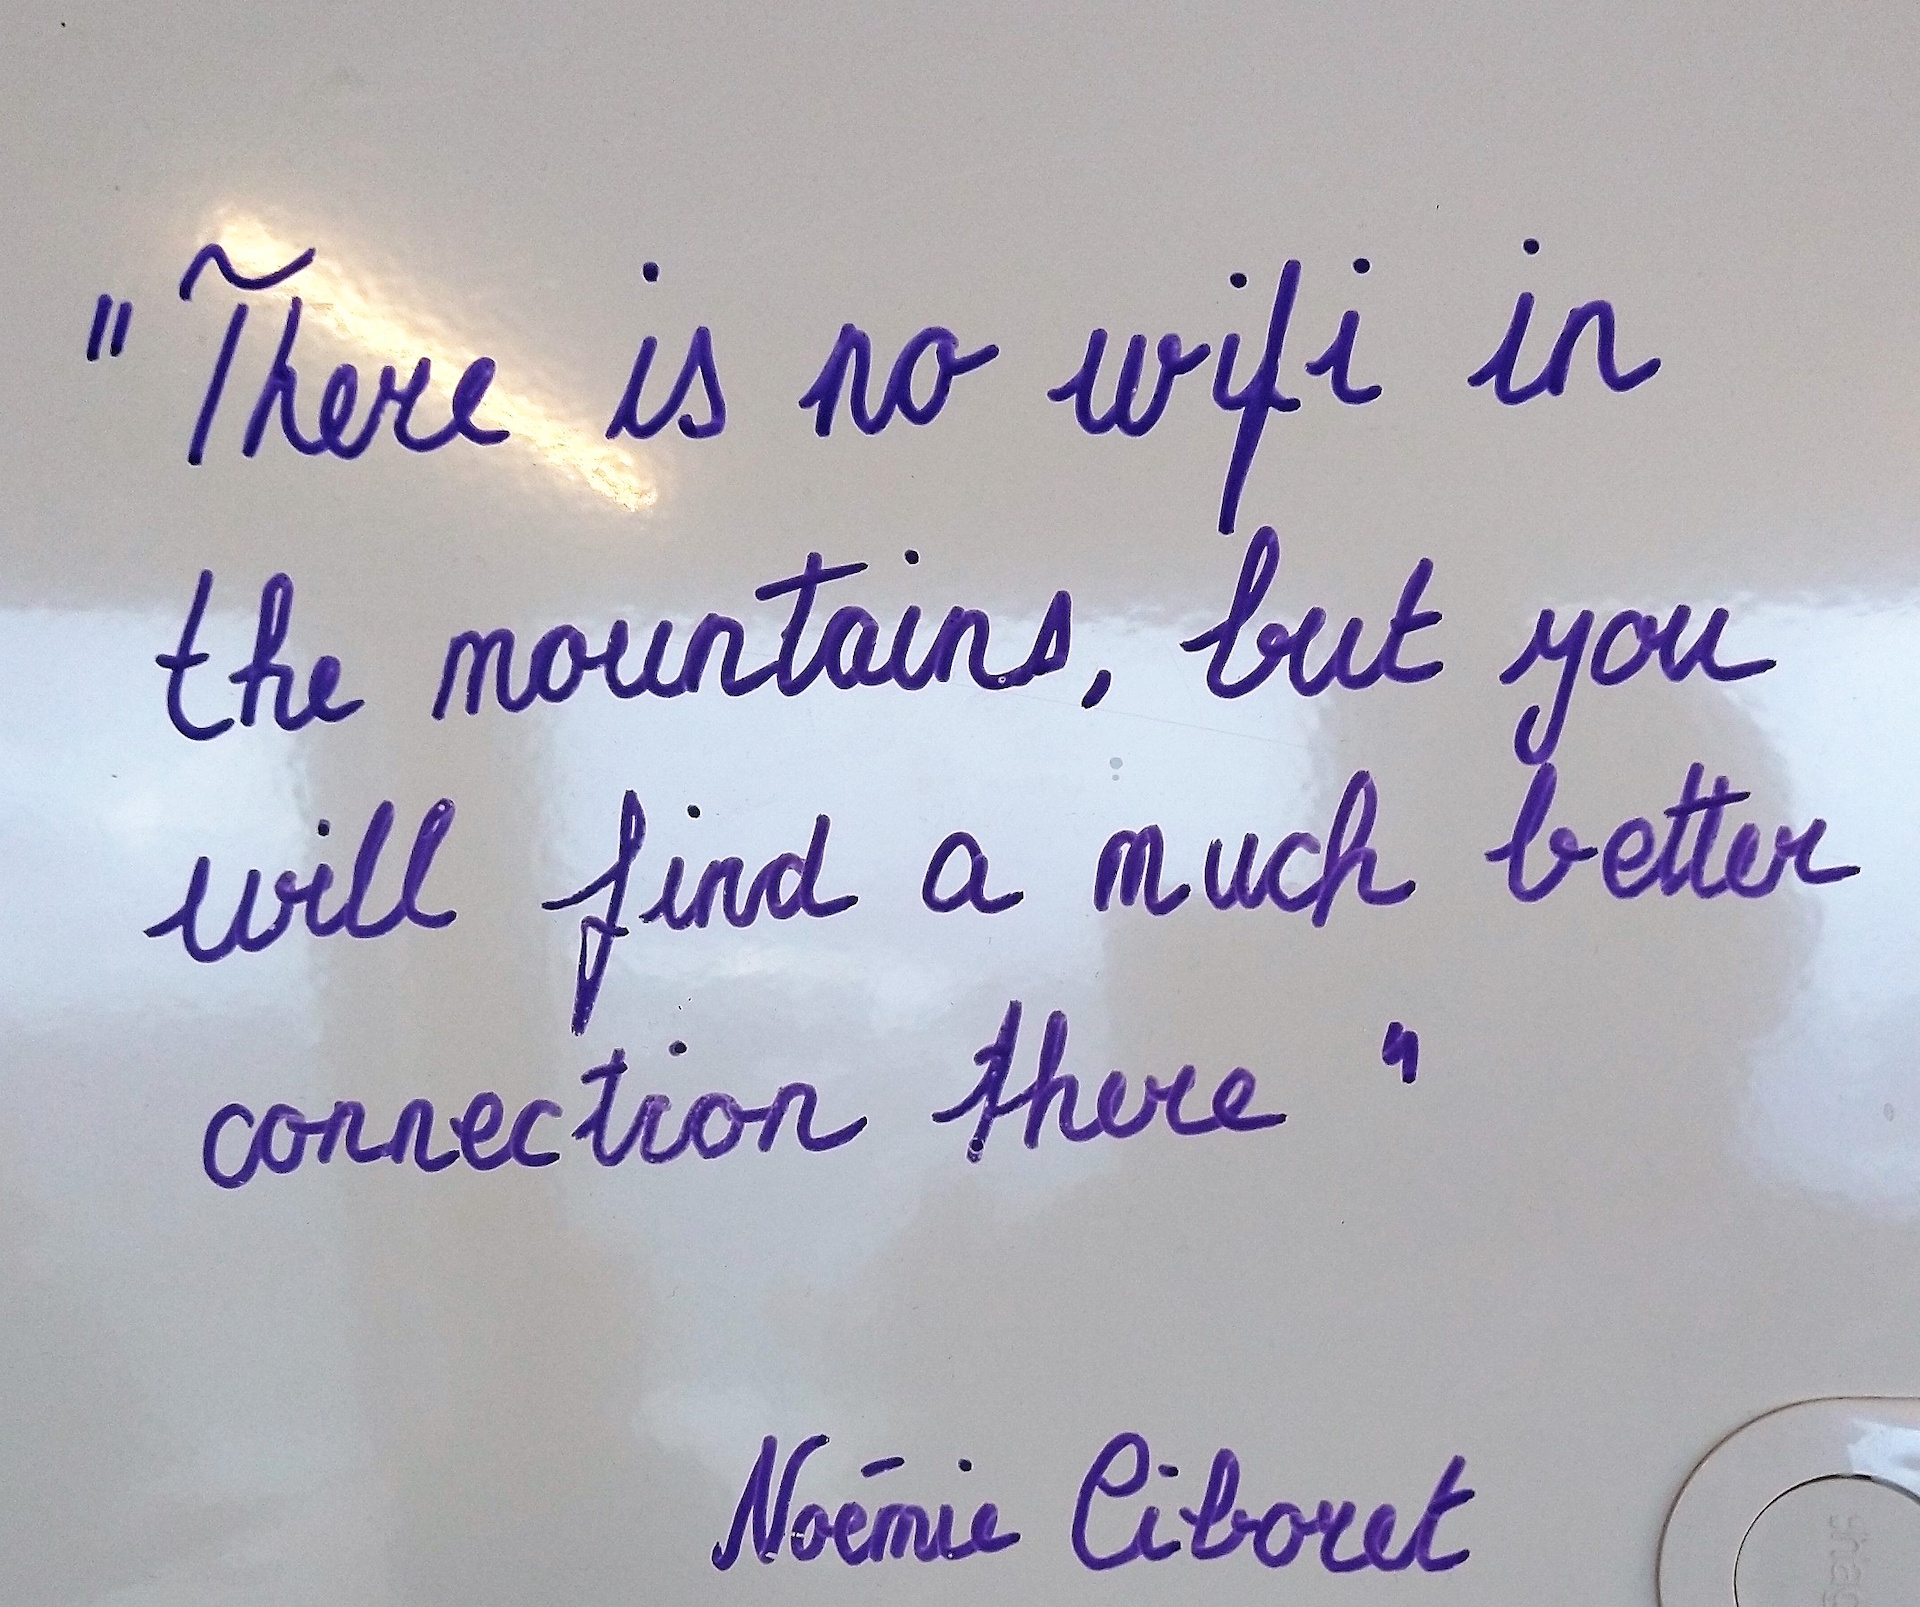 "There is no wifi in
the mountains, but you
will find a much better
connection there"
Noémie Ciboret